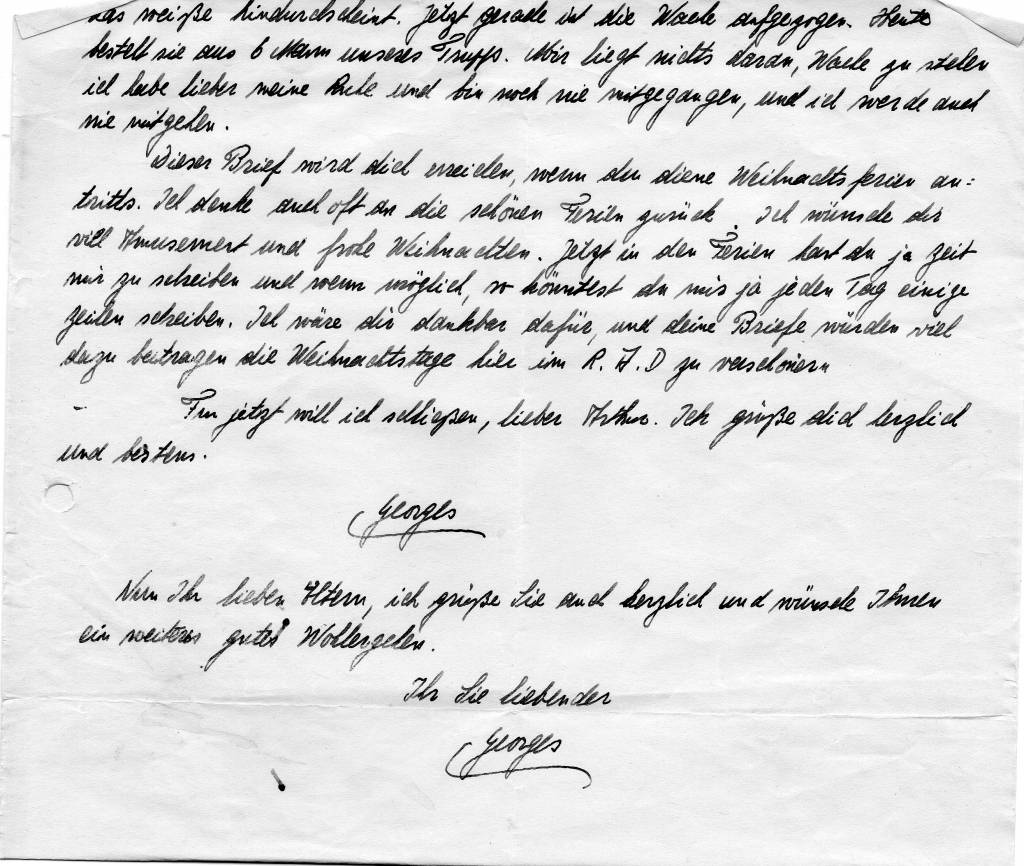 das weiße hindurchscheint. Jetzt gerade ist die Wache aufgezogen. Heute
besteht sie aus 6 Mann unseres Trupps. Mir liegt nichts daran, Wache zu stehen
ich habe lieber meine Ruhe und bin noch nie mitgegangen, und ich werde auch
nie mitgehen.
Dieser Brief wird dich erreichen, wenn du diene Weihnachtsferien an=
tritts. Ich denke auch oft an die schönen Ferien zurück. Ich wünsche dir
viel Amusement und frohe Weihnachten. Jetzt in den Ferien hast du ja Zeit
mir zu schreiben und wenn möglich, so könntest du mir ja jeden Tag einige
Zeilen schreiben. Ich wäre dir dankbar dafür, und deine Briefe würden viel
dazu beitragen die Weihnachtstage hier im R. A. D zu verschönern
Für jetzt will ich schließen, lieber Arthur. Ich grüße dich herzlich
und bestens.
Georges
Nun Ihr lieben Eltern, ich grüße Sie auch herzlich und wünsche Ihnen
ein weiteres gutes Wohlergehen.
Ihr Sie liebender
Georges